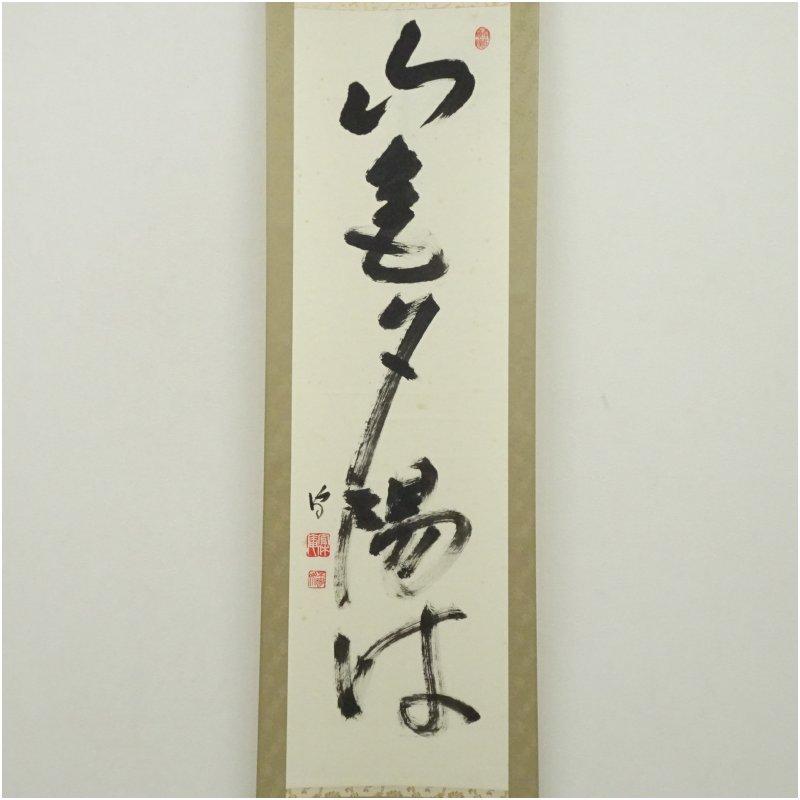 山色夕陽時